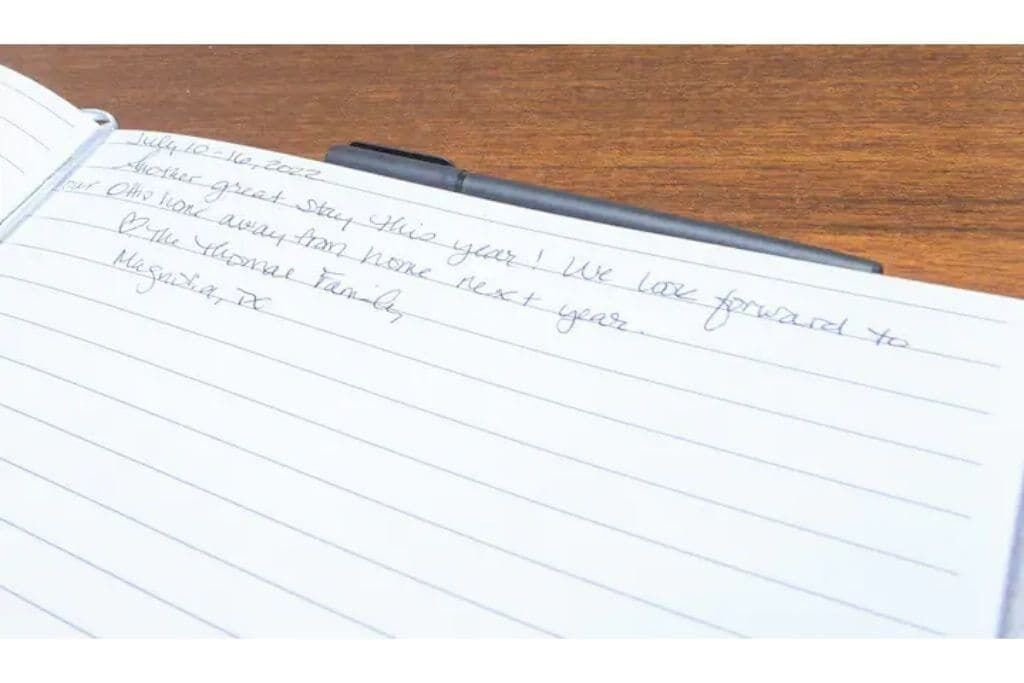 July 10-16, 2022
Another great stay this year! We look forward to
our Ohio home away from home next year.
♡ The Thomae Family
Magnolia, TX